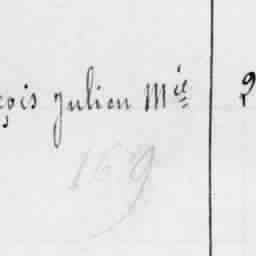 çois Julien Mie 2
169